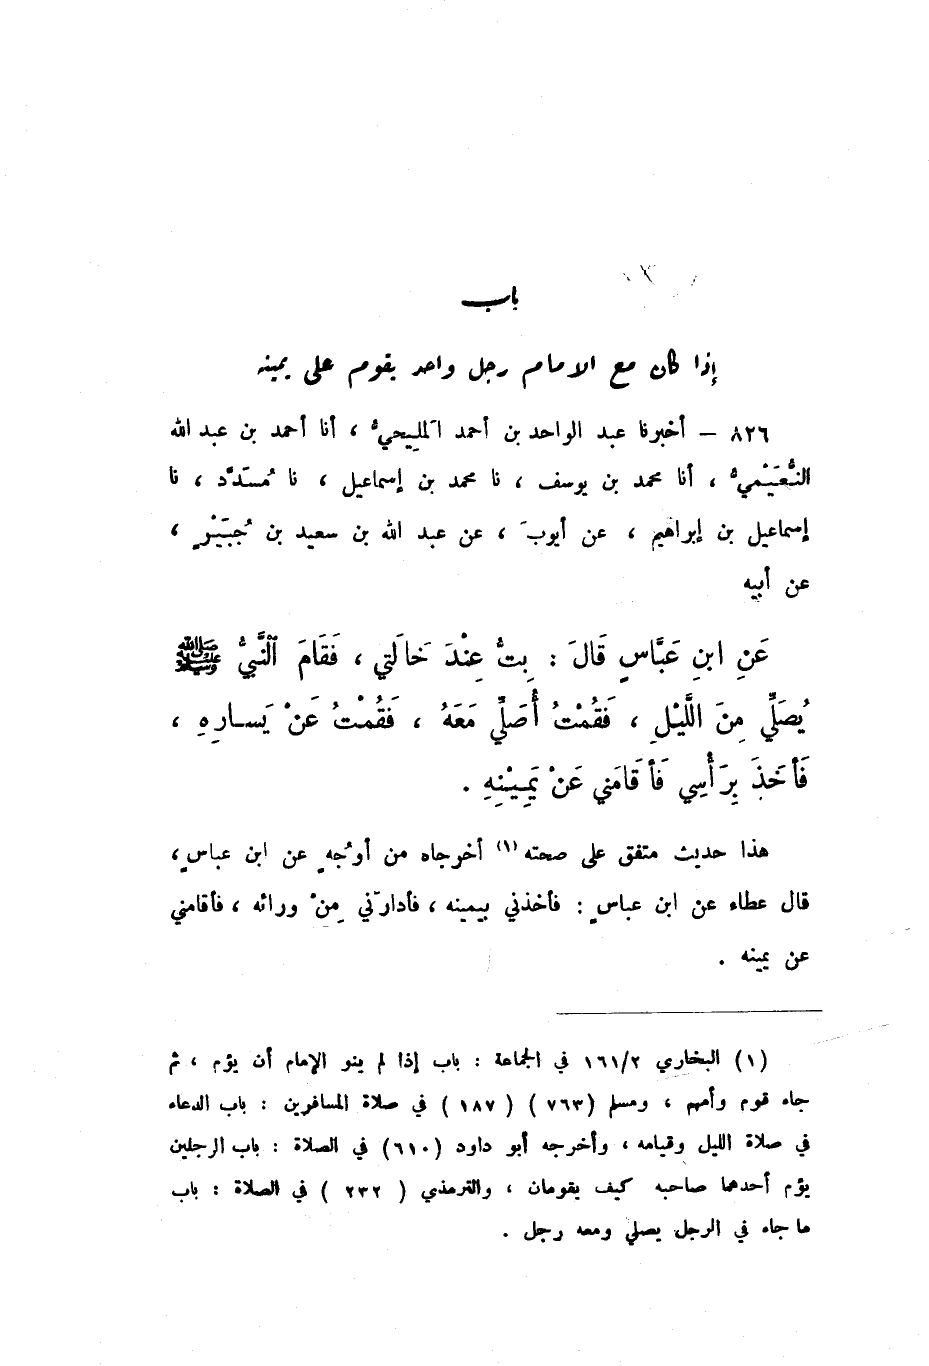 باب
إذا كان مع الامام رجل واحد يقوم على يمينه
٨٢٦ – أخبرنا عبد الواحد بن أحمد المَلِيحيُّ ، أنا أحمد بن عبد الله
النُّعَيْميُّ ، أنا محمد بن يوسف ، نا محمد بن إسماعيل ، نا مُسَدَّد ، نا
إسماعيل بن إبراهيم ، عن أيوبَ ، عن عبد الله بن سعيد بن جُبَيْرٍ ،
عن أبيه
عَنِ ابنِ عَبَّاسٍ قَالَ : بِتُّ عِنْدَ خَالَتي ، فَقَامَ ٱلنَّبيُّ ﷺ
يُصَلِّي مِنَ اللَّيْلِ ، فَقُمْتُ أُصَلِّي مَعَهُ ، فَقُمْتُ عَنْ يَسارِهِ ،
فَأَخَذَ بِرَأْسِي فَأَقَامَني عَنْ يَمِيْنِهِ .
هذا حديث متفق على صحته (١) أخرجاه من أوجُهٍ عن ابن عباسٍ ،
قال عطاء عن ابن عباسٍ : فأخذني بيمينه ، فأدارَني مِنْ ورائه ، فأقامني
عن يمينه .
(١) البخاري ١٦١/٢ في الجماعة : باب إذا لم ينو الإمام أن يؤم ، ثم
جاء قوم وأمهم ، ومسلم (٧٦٣) (١٨٧) في صلاة المسافرين : باب الدعاء
في صلاة الليل وقيامه ، وأخرجه أبو داود (٦١٠) في الصلاة : باب الرجلين
يؤم أحدهما صاحبه كيف يقومان ، والترمذي (٢٣٢) في الصلاة : باب
ما جاء في الرجل يصلي ومعه رجل .